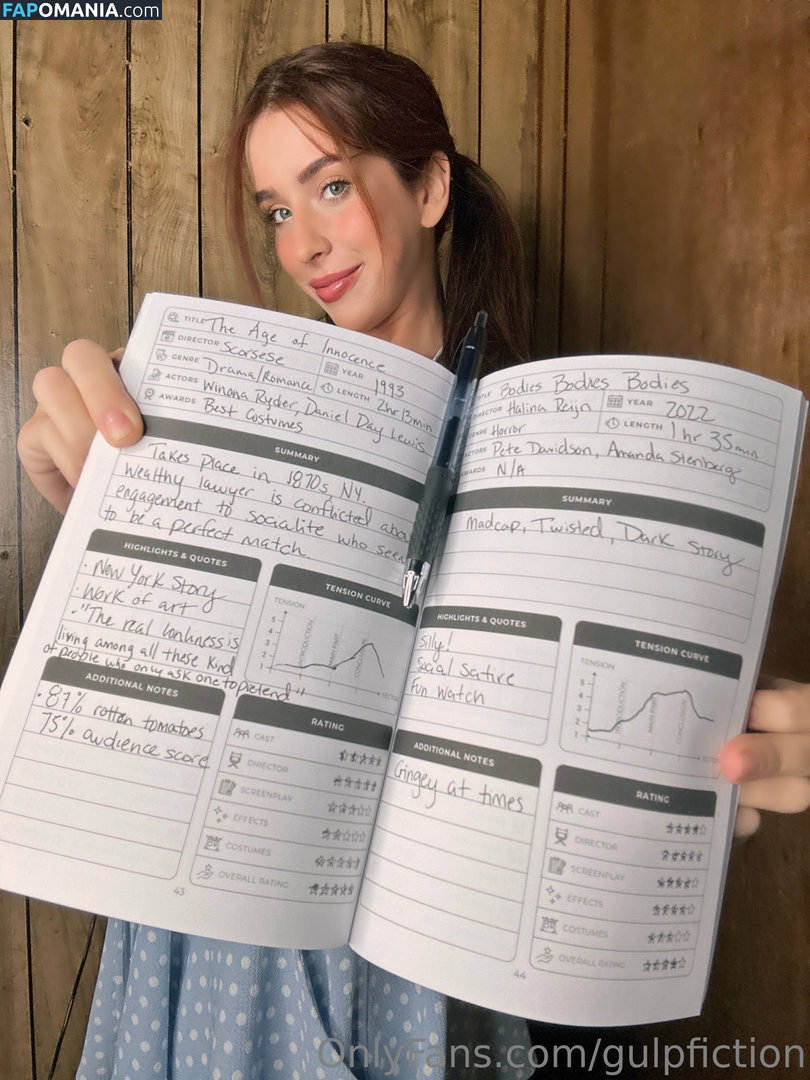 FAPOMANIA.com
TITLE The Age of Innocence
DIRECTOR Scorsese
GENRE Drama/Romance
YEAR 1993
LENGTH 2hr 13min
ACTORS Winona Ryder, Daniel Day Lewis
AWARDS Best Costumes
SUMMARY
Takes place in 1870s, NY.
Wealthy lawyer is conflicted abou
engagement to socialite who seem
to be a perfect match
HIGHLIGHTS & QUOTES
· New York Story
· Work of art
· "The real lonliness is
living among all these kind
of people who only ask one to pretend"
TENSION CURVE
TENSION
5
4
3
2
1
INTRODUCTION
MAIN PART
CONCLUSION
ADDITIONAL NOTES
· 87% rotten tomatoes
75% audience score
RATING
CAST
DIRECTOR
SCREENPLAY
EFFECTS
COSTUMES
OVERALL RATING
43
TITLE Bodies Bodies Bodies
DIRECTOR Halina Reijn
YEAR 2022
GENRE Horror
LENGTH 1 hr 35min
ACTORS Pete Davidson, Amanda Stenberg
AWARDS N/A
SUMMARY
Madcap, Twisted, Dark Story
HIGHLIGHTS & QUOTES
Silly!
Social Satire
Fun Watch
TENSION CURVE
TENSION
5
4
3
2
1
INTRODUCTION
MAIN PART
CONCLUSION
ADDITIONAL NOTES
Cringey at times
RATING
CAST
DIRECTOR
SCREENPLAY
EFFECTS
COSTUMES
OVERALL RATING
44
OnlyFans.com/gulpfiction